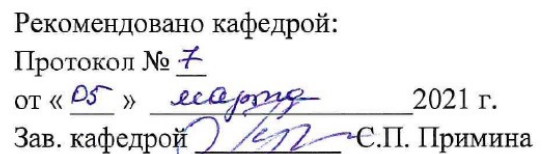 Рекомендовано кафедрой:
Протокол № 7
от « 05 » марта 2021 г.
Зав. кафедрой Е.П. Примина